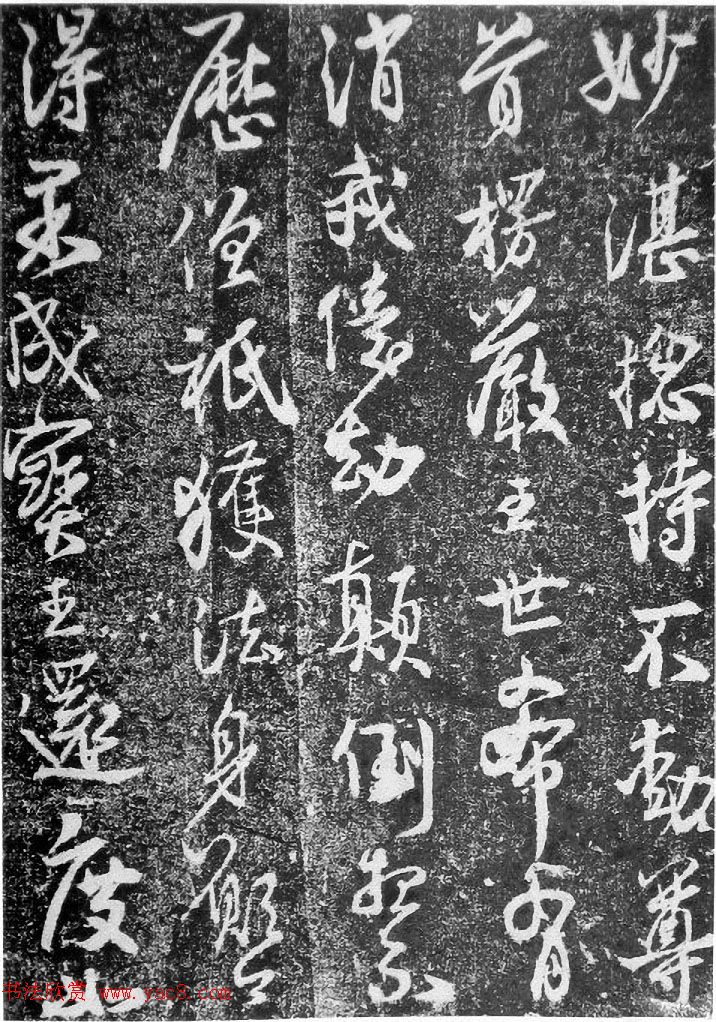 妙湛揔持不動尊
首楞嚴王世希有
消我億劫顛倒想不
歷僧祇獲法身願今
得果成寶王還度
书法欣赏 www.yac8.com